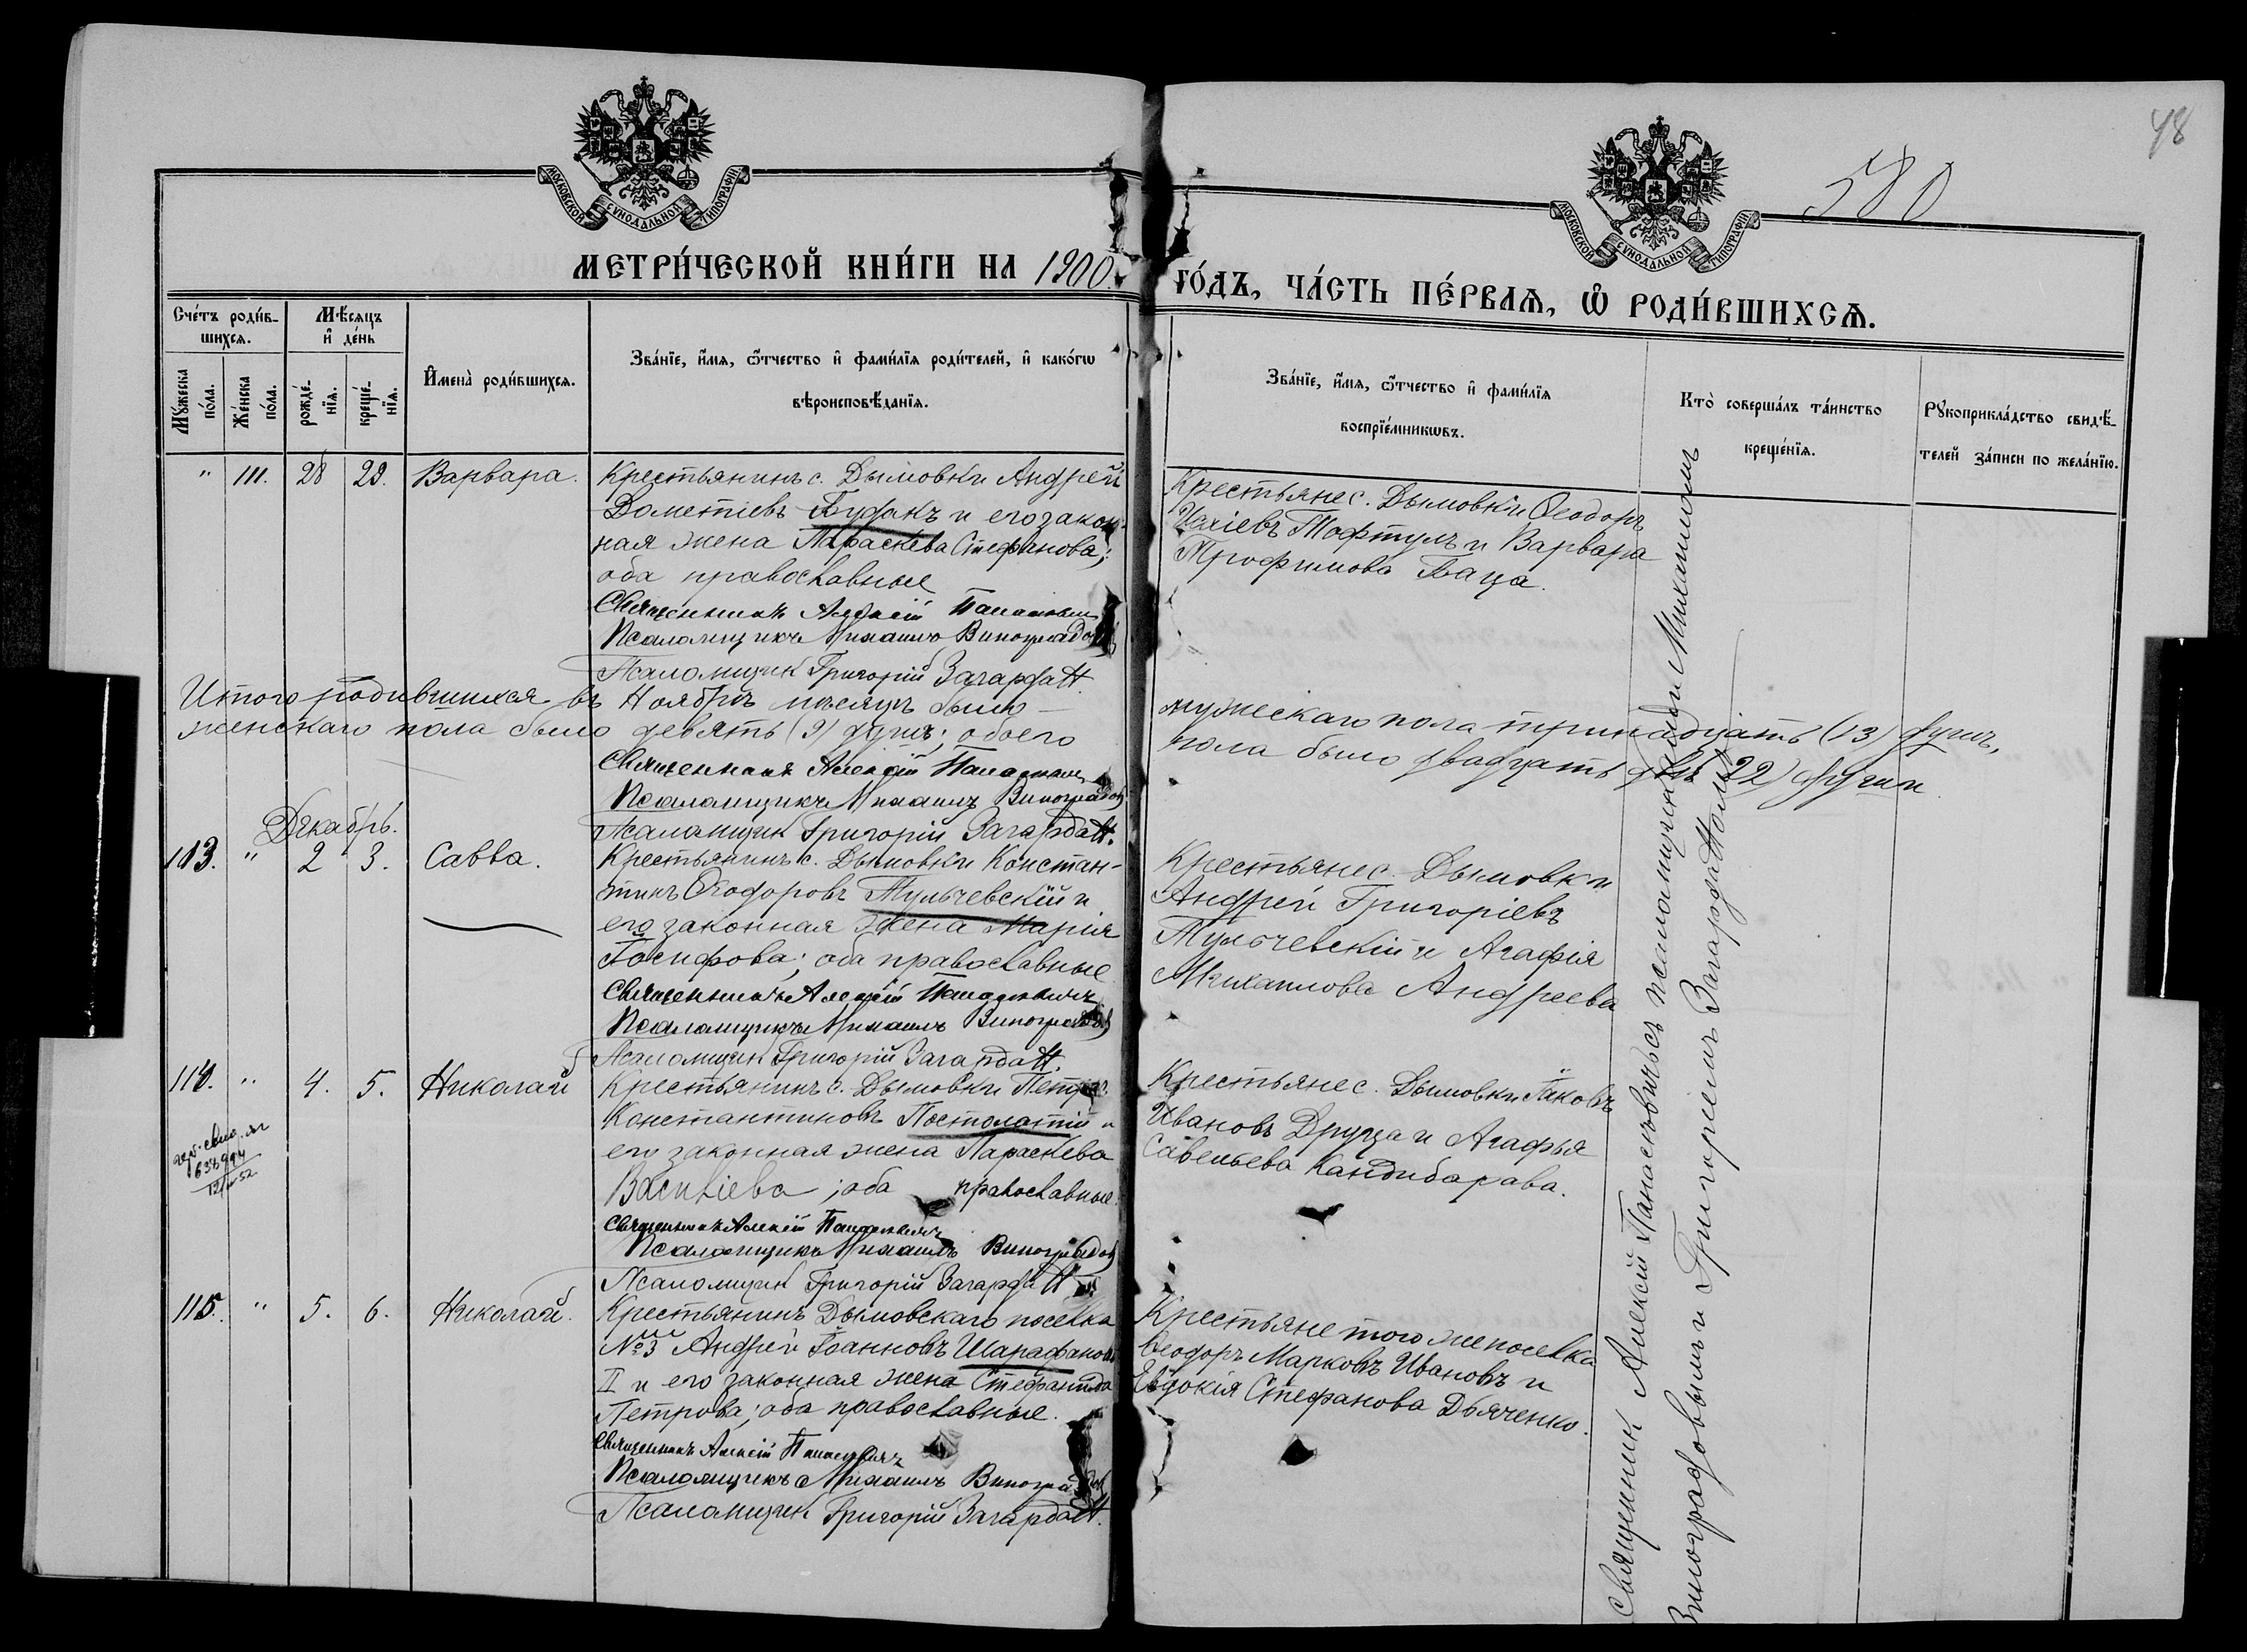 48
580
МОСКОВСКОЙ СѴНОДАЛЬНОЙ ТИПОГРАФІИ
МОСКОВСКОЙ СѴНОДАЛЬНОЙ ТИПОГРАФІИ
МЕТРИ́ЧЕСКОЙ КНИ́ГИ НА 1900.
ГО́ДЪ, ЧА́СТЬ ПЕ́РВАѦ, Ѽ РОДИ́ВШИХСѦ.
Сче́тъ роди́в-
шихсѧ.
Мѣ́сѧцъ
и҆ де́нь
Мꙋ́жеска
по́ла.
Же́нска
по́ла.
рожде́-
нїѧ.
креще́-
нїѧ.
И҆мена̀ роди́вшихсѧ.
Зва́нїе, и҆́мѧ, ѻ҆́тчество и҆ фами́лїѧ роди́телей, и҆ како́гѡ
вѣроисповѣ́данїѧ.
Зва́нїе, и҆́мѧ, ѻ҆́тчество и҆ фами́лїѧ
воспрїе́мникѡвъ.
Кто̀ соверша́лъ та́инство
креще́нїѧ.
Рꙋкоприкла́дство свидѣ́-
телей за́писи по жела́нїю.
" 111. 28 29. Варвара.
Крестьянинъ с. Дымовки Андрей
Дометіевъ Буфакъ и его закон-
ная жена Параскева Стефанова;
оба православные
Священникъ Алексій Панасевичъ
Псаломщикъ Михаилъ Виноградовъ
Псаломщик Григорій Загарда
Крестьяне с. Дымовки Ѳеодоръ
Тофтулъ и Варвара
Трофимова Баца.
Итого родившихся въ Ноябрѣ мѣсяцѣ было —
мужескаго пола тринадцать (13) душъ,
женскаго пола было девять (9) душъ; обоего
пола было двадцать двѣ (22) души
Священникъ Алексій Панасевичъ
Псаломщикъ Михаилъ Виноградовъ
Псаломщик Григорій Загарда
Декабрь.
113. " 2 3. Савва.
Крестьянинъ с. Дымовки Констан-
тинъ Ѳеодоровъ Тульчевскій и
его законная жена Марія
Іосифова; оба православные
Священникъ Алексій Панасевичъ
Псаломщикъ Михаилъ Виноградовъ
Псаломщик Григорій Загарда
Крестьяне с. Дымовки
Андрей Григоріевъ
Тульчевскій и Агафія
Михаилова Андреева
114. " 4. 5. Николай
638994
Крестьянинъ с. Дымовки Петръ
Константиновъ Постолатій и
его законная жена Параскева
Василіева; оба православные.
Священникъ Алексій Панасевичъ
Псаломщикъ Михаилъ Виноградовъ
Псаломщик Григорій Загарда
Крестьяне с. Дымовки Іаковъ
Ивановъ Друца и Агафья
Савельева Кандибарава.
115. " 5. 6. Николай.
Крестьянинъ Дымовскаго поселка
№ 3 Андрей Іоанновъ Шарафановъ
II и его законная жена Стефанида
Петрова; оба православные.
Священникъ Алексій Панасевичъ
Псаломщикъ Михаилъ Виноградовъ
Псаломщик Григорій Загарда
Крестьяне того же поселка
Ѳеодоръ Марковъ Ивановъ и
Евдокія Стефанова Дьяченко.
Священник Алексій Панасевичъ съ псаломщиками Михаиломъ
Виноградовымъ и Григоріемъ Загарда